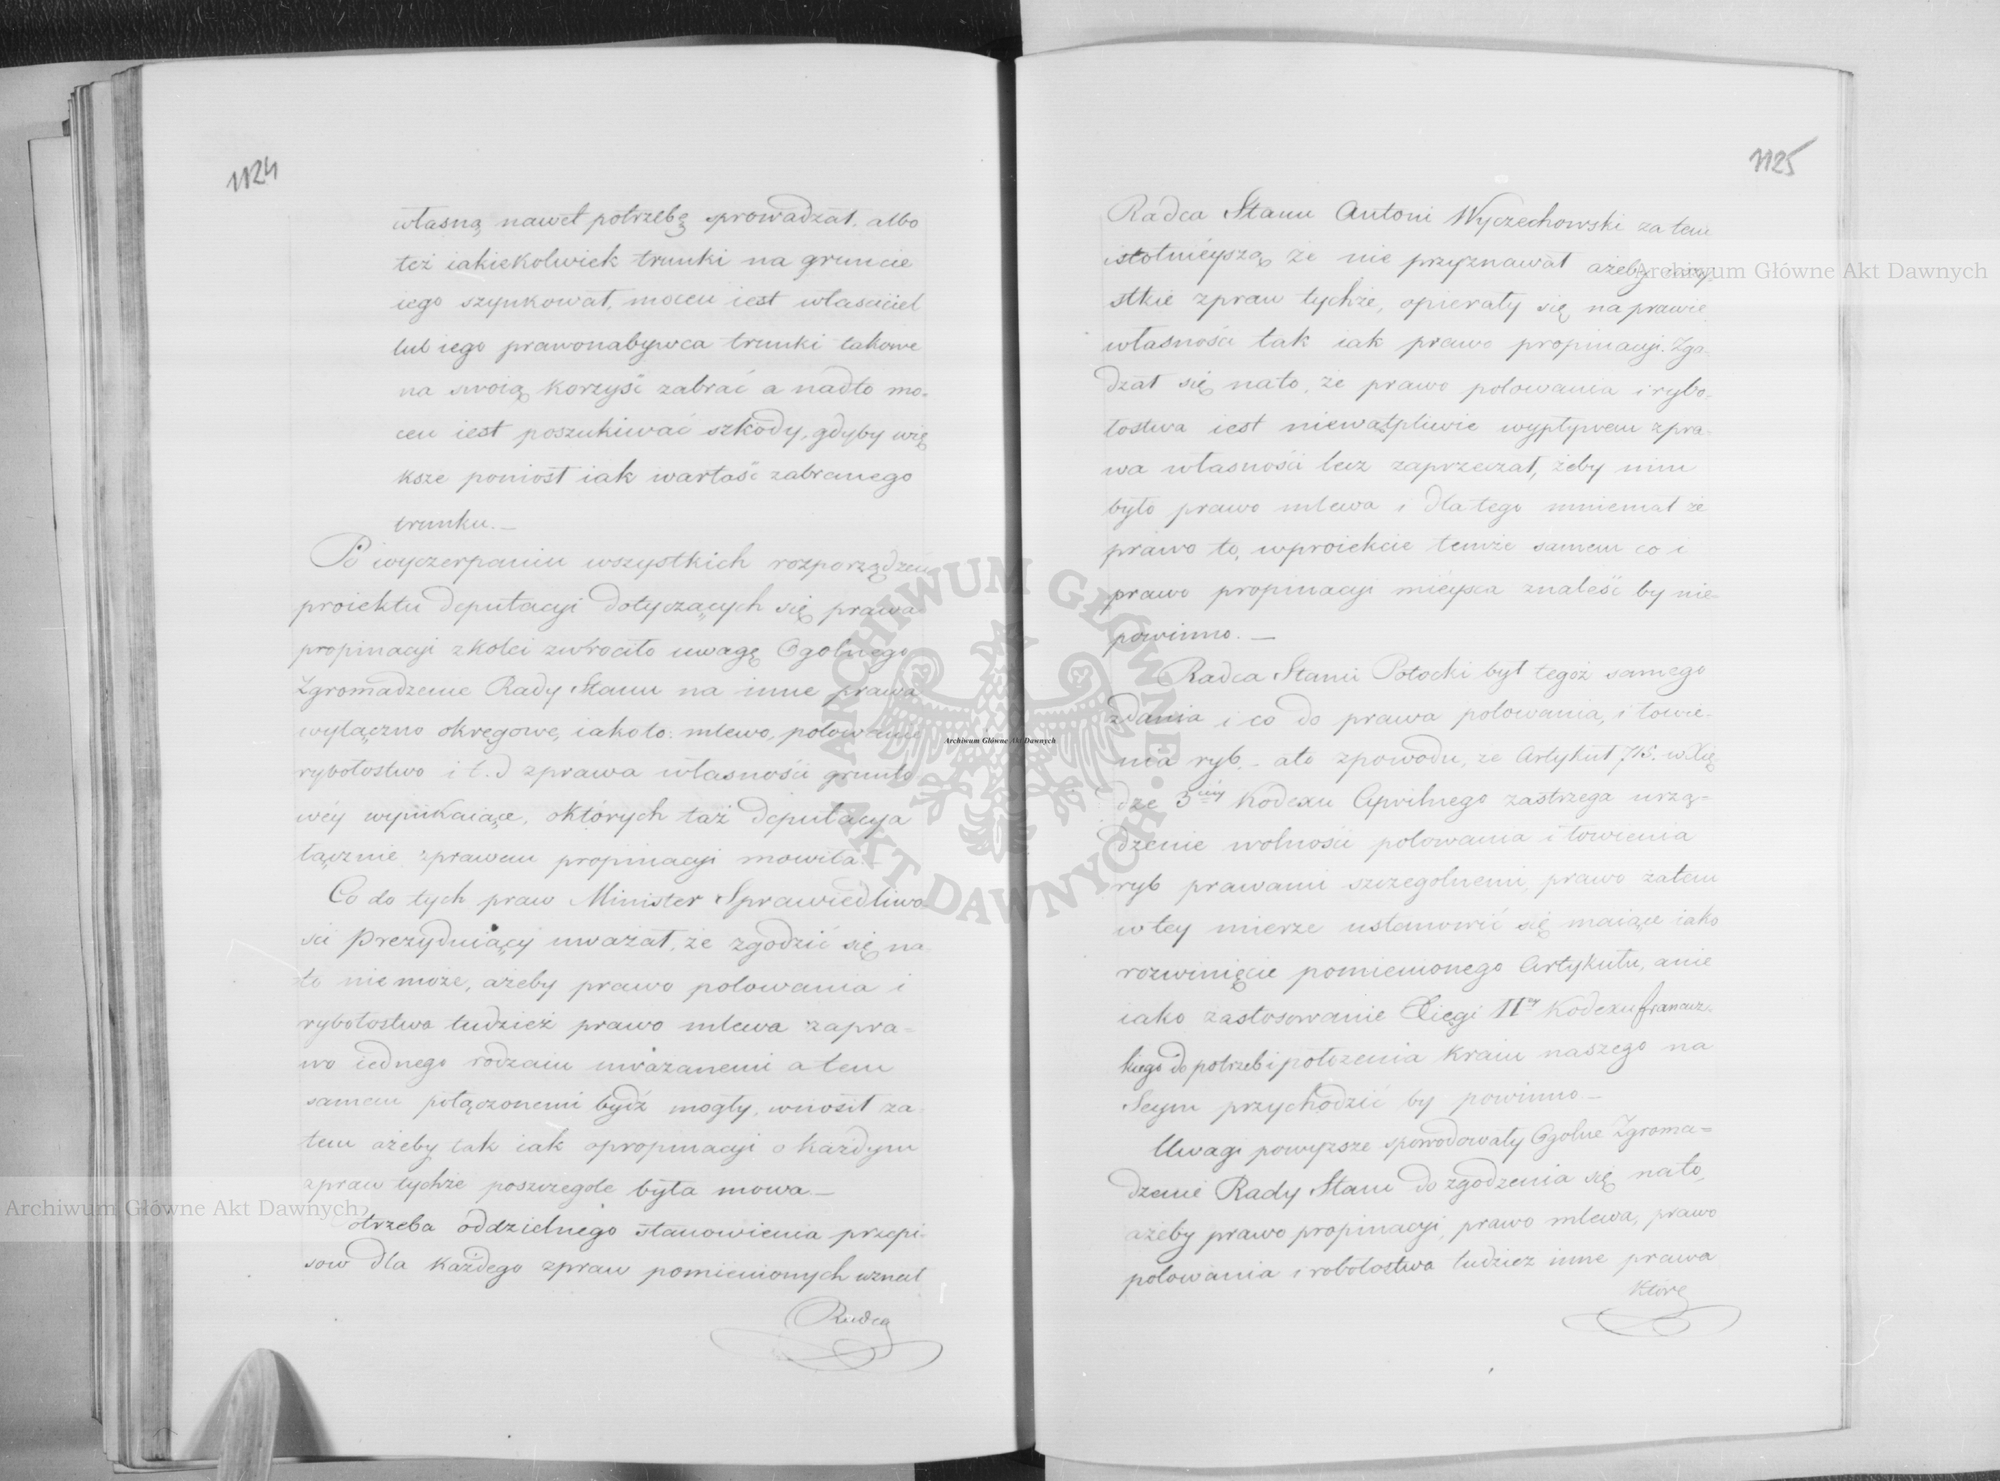 1124
własną nawet potrzebę sprowadzał, albo
też iakiekolwiek trunki na gruncie
iego szynkował, mocen iest właściciel
lub iego prawonabywca trunki takowe
na swoią korzyść zabrać a nadto mo-
cen iest poszukiwać szkody, gdyby wię
ksze poniosł iak wartość zabranego
trunku. —
Po wyczerpaniu wszystkich rozporządzeń
proiektu deputacyi dotyczących się prawa
propinacyi z kolei zwrociło uwagę Ogolnego
Zgromadzenie Rady Stanu na inne prawa
wyłączno okręgowe, iakoto: mlewo, polowanie
rybołostwo i t. d zprawa własności grunto
wéy wynikaiące, októrych taż deputacya
łącznie zprawem propinacyi mowiła. —
Co do tych praw Minister Sprawiedliwo-
ści Prezyduiący uważał, że zgodzić się na
to nie może, ażeby prawo polowania i
rybołostwa tudzież prawo mlewa zapra=
wo iednego rodzaiu uważanemi a tem
samem połączonemi bydź mogły, wnosił za
tem ażeby tak iak opropinacyi o każdym
zpraw tychże poszczegole była mowa —
Potrzeba oddzielnego stanowienia przepi-
sow dla każdego zpraw pomienionych uznał
Radca
1125
Radca Stanu Antoni Wyczechowski za tem
istotniéyszą że nie przyznawał ażeby wszy-
stkie zpraw tychże, opierały się na prawie
własności tak iak prawo propinacyi. Zga-
dzał się nato, że prawo polowania i rybo-
łostwa iest niewątpliwie wypływem zpra-
wa własności lecz zaprzeczał, żeby nim
było prawo mlewa i dla tego mniemał że
prawo to, wproiekcie temże samem co i
prawo propinacyi miéysca znaleść by nie-
powinno. —
Radca Stanu Potocki był tegoż samego
zdania i co do prawa polowania, i łowie-
nia ryb, - ato zpowodu, że Artykuł 715. w Xię
dze 3ciéy Kodexu Cywilnego zastrzega urzą=
dzenie wolności polowania i łowienia
ryb prawami szczegolnemi, prawo zatem
wtey mierze ustanowić się maiące iako
rozwinięcie pomienionego Artykułu, anie
iako zastosowanie Xięgi IIey Kodexu francuz-
kiego do potrzeb i położenia Kraiu naszego na
Seym przychodzić by powinno —
Uwagi powyższe spowodowały Ogolne Zgroma=
dzenie Rady Stanu do zgodzenia się nato,
ażeby prawo propinacyi, prawo mlewa, prawo
polowania i robołostwa tudzież inne prawa
Które
Archiwum Główne Akt Dawnych
Archiwum Główne Akt Dawnych
Archiwum Główne Akt Dawnych
ARCHIWUM GŁÓWNE · AKT DAWNYCH ·